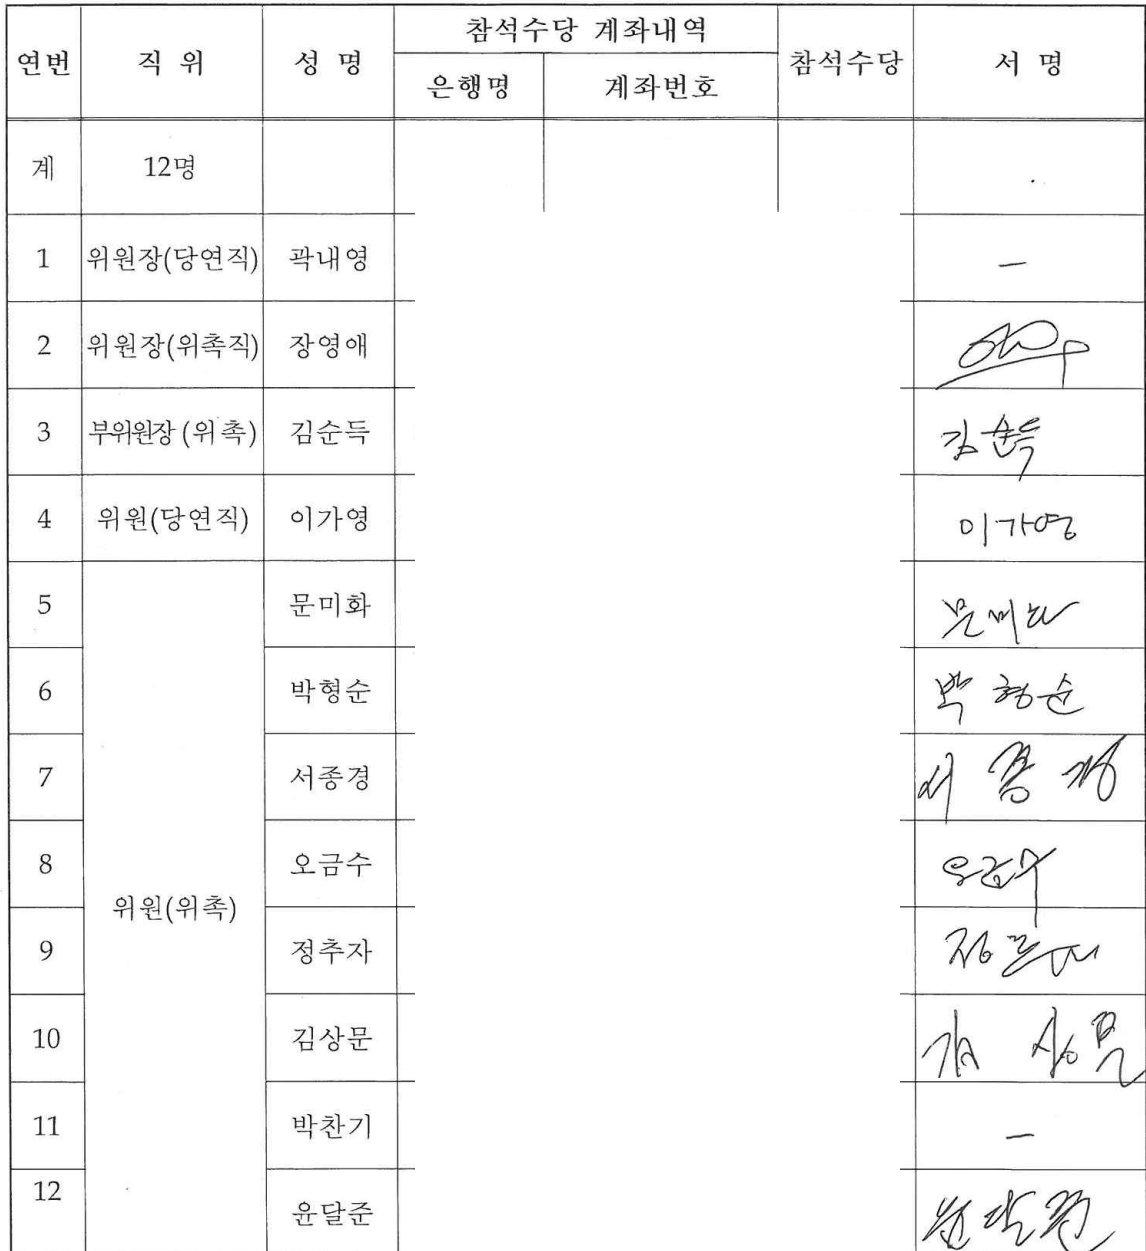 연번 직 위 성 명 참석수당 계좌내역 참석수당 서 명
은행명 계좌번호
계 12명
1 위원장(당연직) 곽내영 —
2 위원장(위촉직) 장영애
3 부위원장 (위촉) 김순득 김순득
4 위원(당연직) 이가영 이가영
5 문미화 문미화
6 박형순 박형순
7 서종경 서종경
8 오금수 오금수
위원(위촉)
9 정추자 정추자
10 김상문 김상문
11 박찬기 —
12 윤달준 윤달준